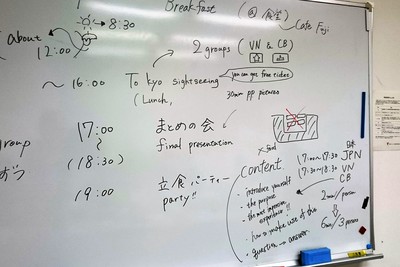 → 8:30
Breakfast
(@ 食堂)
Cafe Fuji
about
12:00
2 groups (VN & CB)
~ 16:00
Tokyo sightseeing
you can get free ticket
(Lunch,
30min PP pictures
group
17:00
まとめの会
final presentation
(18:30)
19:00
立食パーティー
party!!
× food
content
17:00~17:30
日本
JPN
17:30~18:30
VN
CB
・introduce yourself
・the purpose
・the most impressive
experience!!!
・how to make use of this
・question → answer
2min/person
6min/3 person